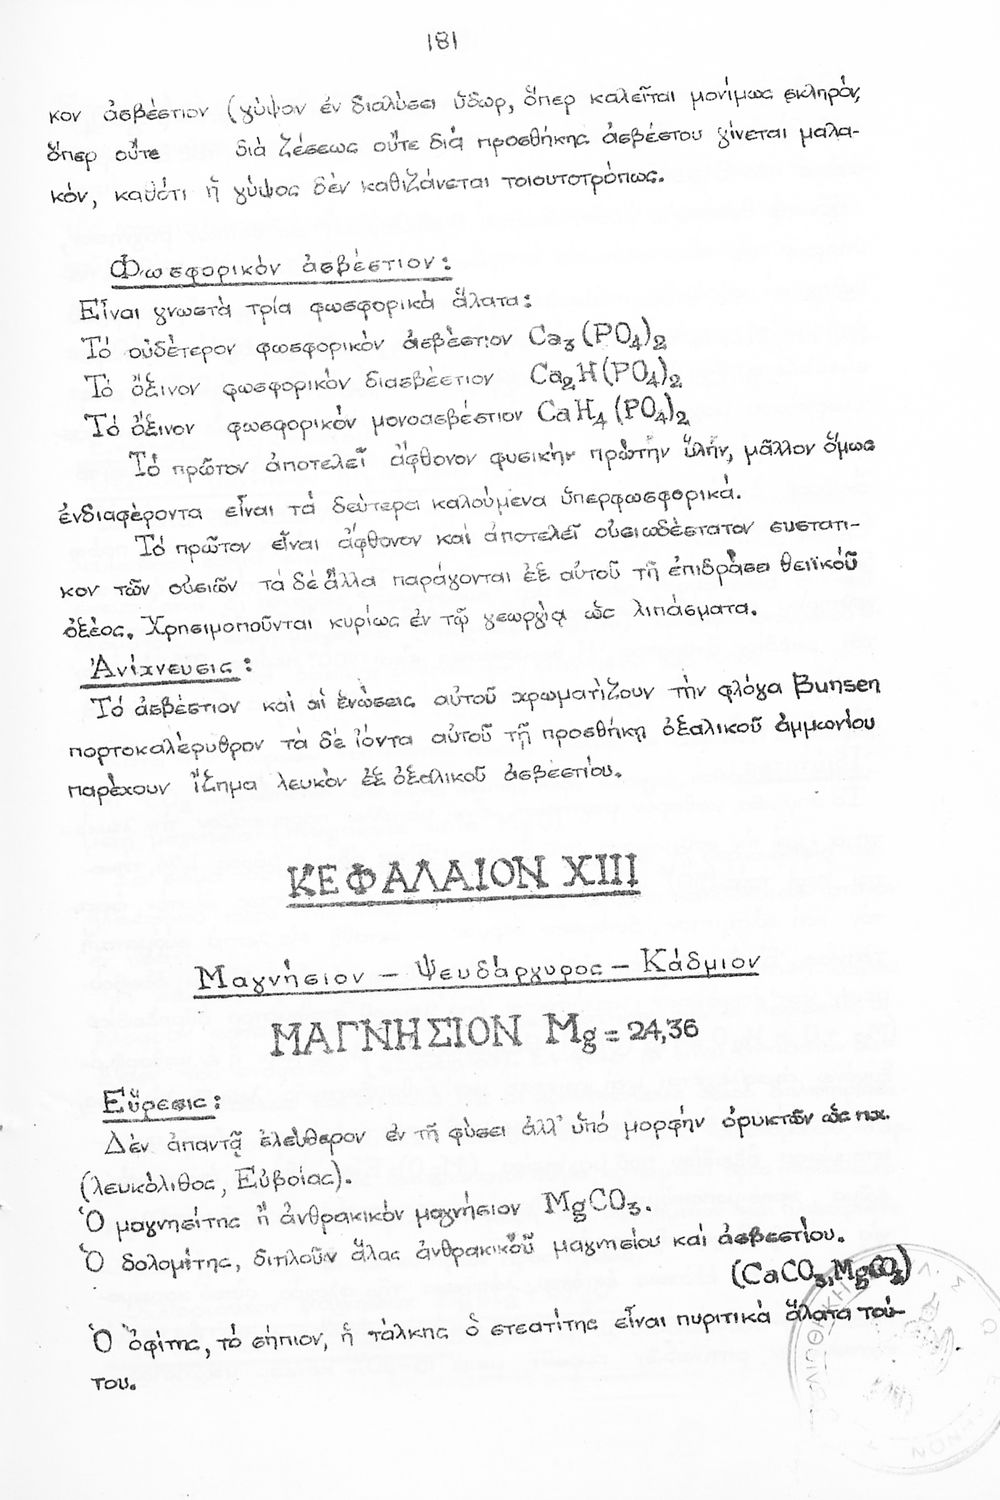 181
κον ἀσβέστιον (γύψον ἐν διαλύσει ὕδωρ, ὅπερ καλεῖται μονίμως σκληρόν,
ὅπερ οὔτε διά ζέσεως οὔτε διά προσθήκης ἀσβέστου γίνεται μαλα-
κόν, καθότι ἡ γύψος δέν καθιζάνεται τοιουτοτρόπως.
Φωσφορικόν ἀσβέστιον:
Εἶναι γνωστά τρία φωσφορικά ἅλατα:
Τό οὐδέτερον φωσφορικόν ἀσβέστιον Ca₃(PO₄)₂
Τό ὄξινον φωσφορικόν διασβέστιον Ca₂H(PO₄)₂
Τό ὄξινον φωσφορικόν μονοασβέστιον CaH₄(PO₄)₂
Τό πρῶτον ἀποτελεῖ ἄφθονον φυσικήν πρώτην ὕλην, μᾶλλον ὅμως
ἐνδιαφέροντα εἶναι τά δεύτερα καλούμενα ὑπερφωσφορικά.
Τό πρῶτον εἶναι ἄφθονον καί ἀποτελεῖ οὐσιωδέστατον συστατι-
κον τῶν οὐσιῶν τά δέ ἄλλα παράγονται ἐξ αὐτοῦ τῇ ἐπιδράσει θειϊκοῦ
ὀξέος. Χρησιμοποῦνται κυρίως ἐν τῷ γεωργίᾳ ὡς λιπάσματα.
Ἀνίχνευσις:
Τό ἀσβέστιον καί αἱ ἑνώσεις αὐτοῦ χρωματίζουν τήν φλόγα Bunsen
πορτοκαλέρυθρον τά δέ ἰόντα αὐτοῦ τῇ προσθήκῃ ὀξαλικοῦ ἀμμωνίου
παρέχουν ἵζημα λευκόν ἐξ ὀξαλικοῦ ἀσβεστίου.
ΚΕΦΑΛΑΙΟΝ XIII
Μαγνήσιον – Ψευδάργυρος – Κάδμιον
ΜΑΓΝΗΣΙΟΝ Mg = 24,36
Εὕρεσις:
Δέν ἀπαντᾷ ἐλεύθερον ἐν τῇ φύσει ἀλλ' ὑπό μορφήν ὀρυκτῶν ὡς π.χ.
(λευκόλιθος, Εὐβοίας).
Ὁ μαγνησίτης ἤ ἀνθρακικόν μαγνήσιον MgCO₃.
Ὁ δολομίτης, διπλοῦν ἅλας ἀνθρακικοῦ μαγνησίου καί ἀσβεστίου.
(CaCO₃,MgCO₃)
Ὁ ὀφίτης, τό σήπιον, ἡ τάλκης ὁ στεατίτης εἶναι πυριτικά ἅλατα τού-
του.